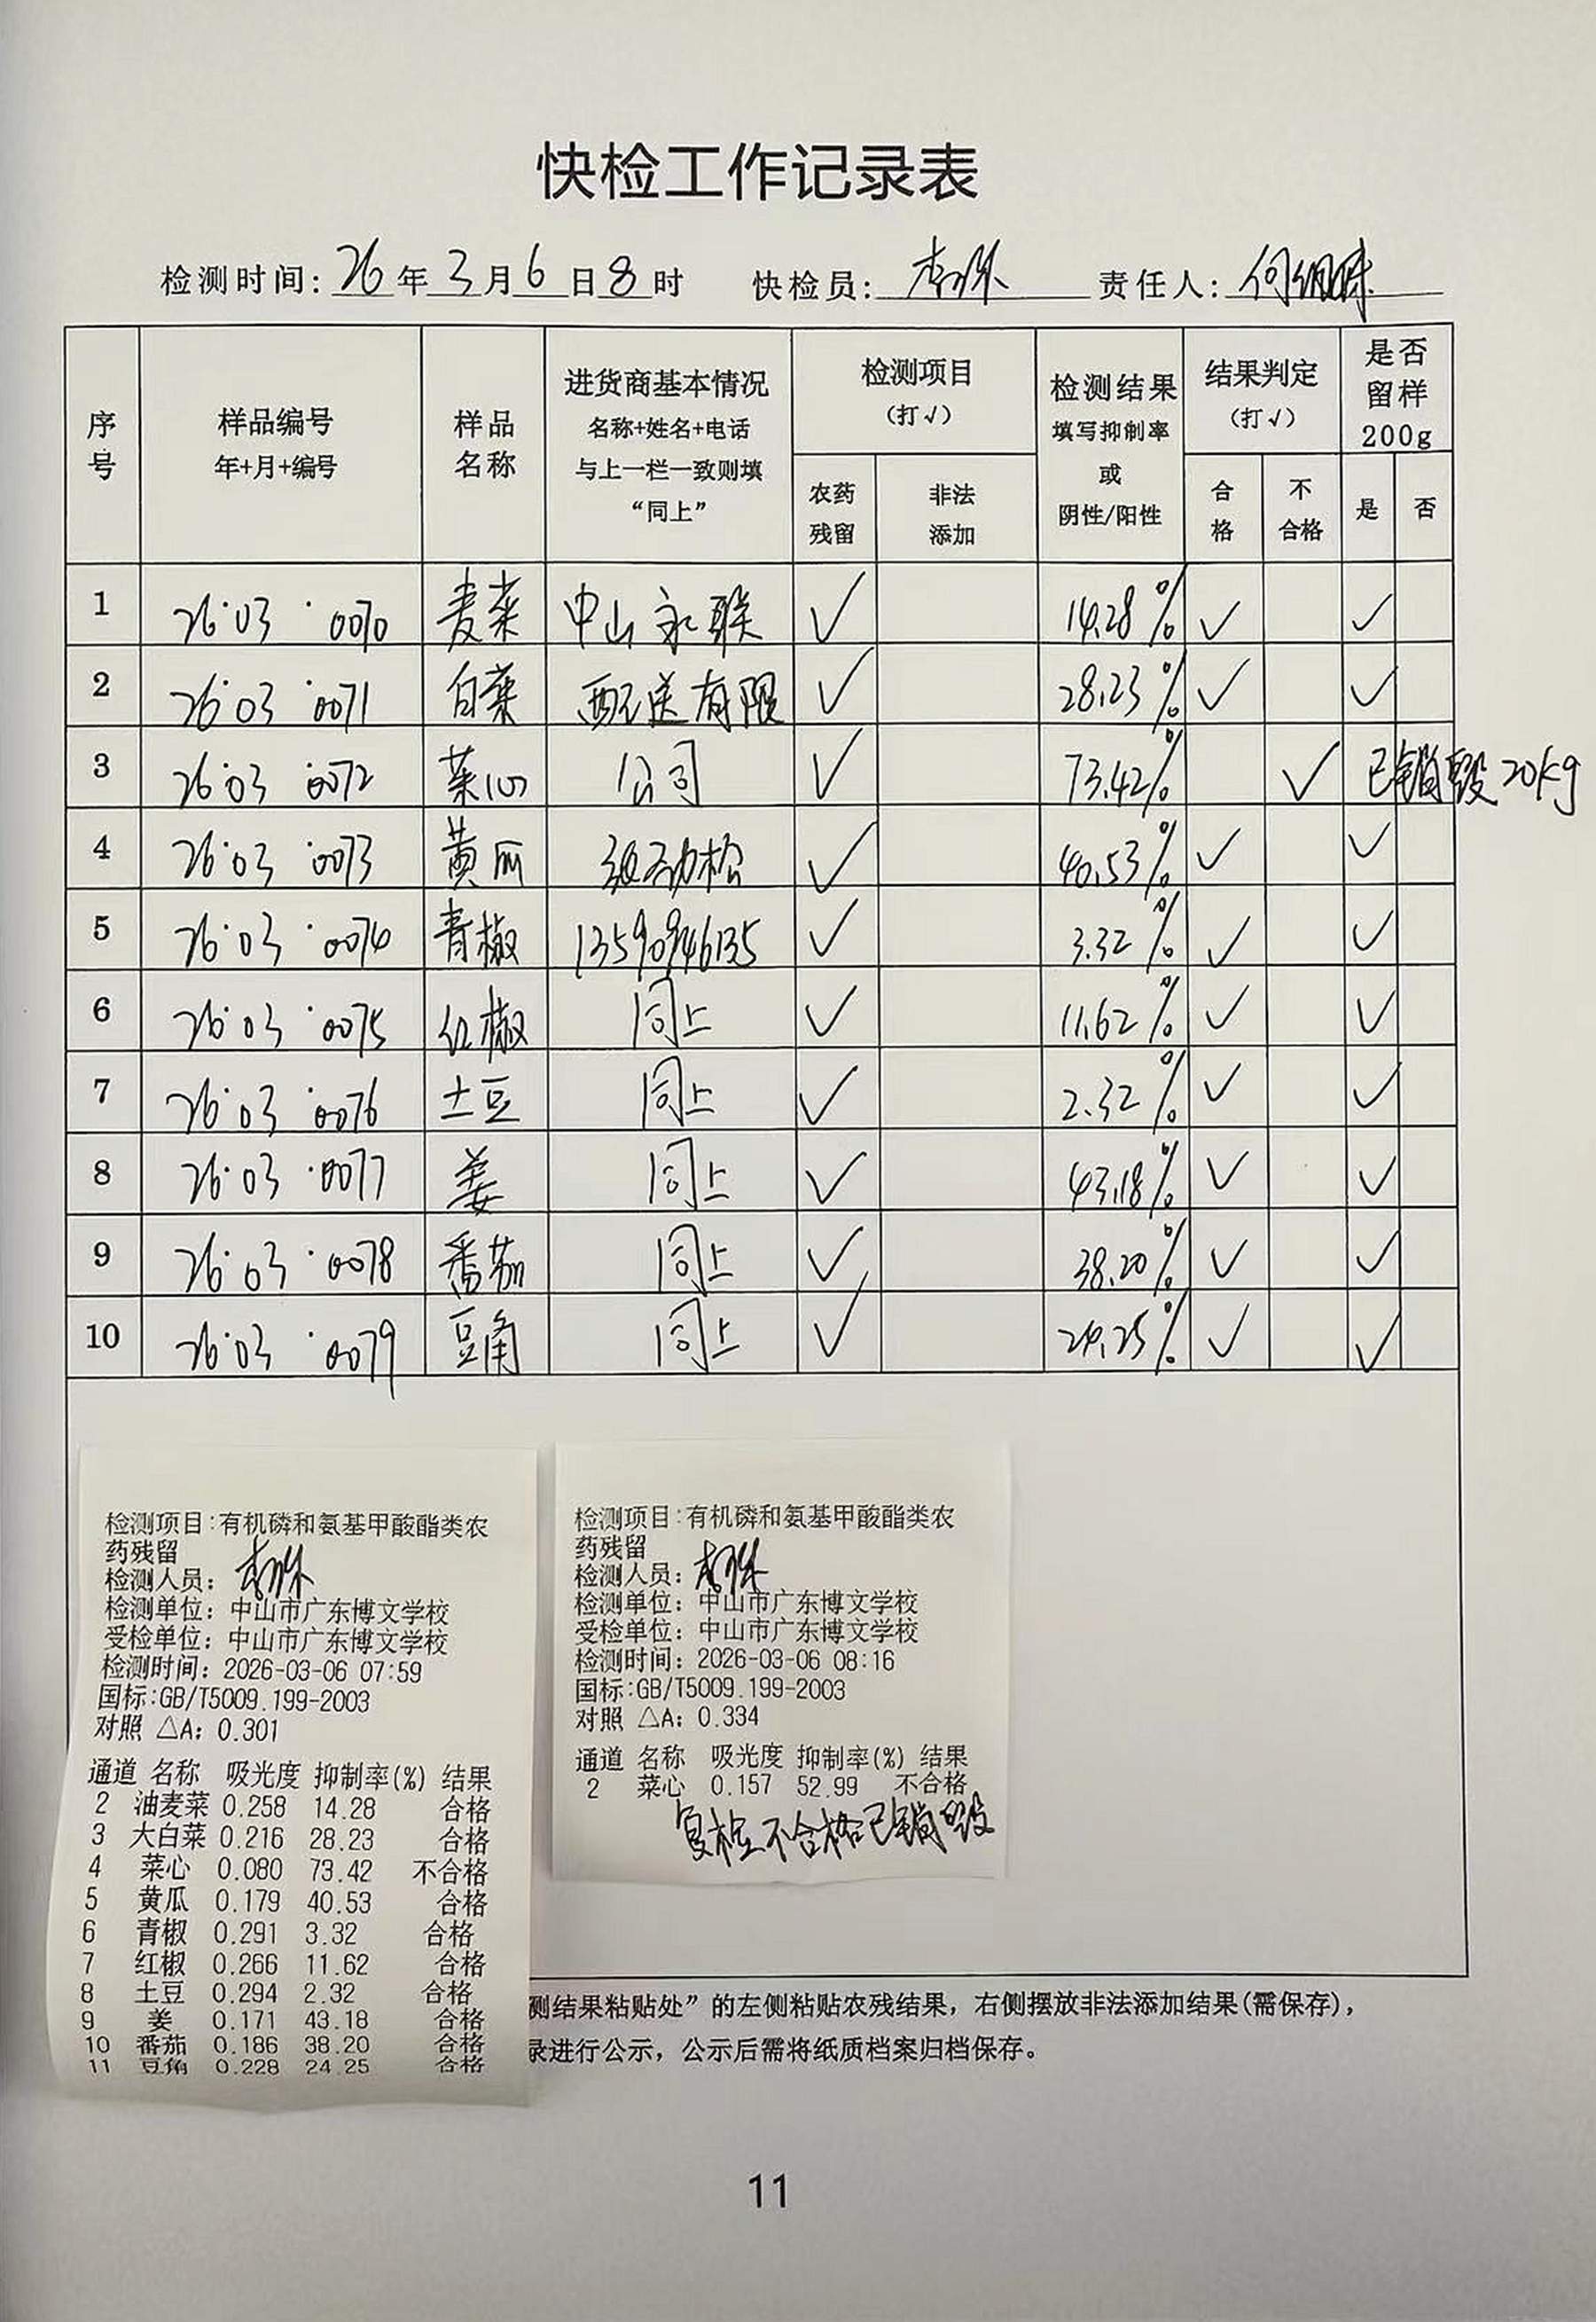 快检工作记录表
检测时间：26年3月6日8时 快检员： 责任人：何
序号 样品编号 年+月+编号 样品名称 进货商基本情况 名称+姓名+电话 与上一栏一致则填“同上” 检测项目（打√） 农药残留 非法添加 检测结果 填写抑制率或阴性/阳性 结果判定（打√） 合格 不合格 是否留样200g 是 否
1 26·03·0070 麦菜 中山永联 √ 14.28% √ √
2 26·03·0071 白菜 配送有限 √ 28.23% √ √
3 26·03·0072 菜心 公司 √ 73.42% √ 已销毁20kg
4 26·03·0073 黄瓜 劲松 √ 40.53% √ √
5 26·03·0074 青椒 13590946135 √ 3.32% √ √
6 26·03·0075 红椒 同上 √ 11.62% √ √
7 26·03·0076 土豆 同上 √ 2.32% √ √
8 26·03·0077 姜 同上 √ 43.18% √ √
9 26·03·0078 番茄 同上 √ 38.20% √ √
10 26·03·0079 豆角 同上 √ 24.25% √ √
检测项目:有机磷和氨基甲酸酯类农
药残留
检测人员：
检测单位：中山市广东博文学校
受检单位：中山市广东博文学校
检测时间：2026-03-06 07:59
国标:GB/T5009.199-2003
对照 △A：0.301
通道 名称 吸光度 抑制率(%) 结果
2 油麦菜 0.258 14.28 合格
3 大白菜 0.216 28.23 合格
4 菜心 0.080 73.42 不合格
5 黄瓜 0.179 40.53 合格
6 青椒 0.291 3.32 合格
7 红椒 0.266 11.62 合格
8 土豆 0.294 2.32 合格
9 姜 0.171 43.18 合格
10 番茄 0.186 38.20 合格
11 豆角 0.228 24.25 合格
检测项目:有机磷和氨基甲酸酯类农
药残留
检测人员：
检测单位：中山市广东博文学校
受检单位：中山市广东博文学校
检测时间：2026-03-06 08:16
国标:GB/T5009.199-2003
对照 △A：0.334
通道 名称 吸光度 抑制率(%) 结果
2 菜心 0.157 52.99 不合格
复检不合格已销毁
测结果粘贴处”的左侧粘贴农残结果，右侧摆放非法添加结果(需保存)，
录进行公示，公示后需将纸质档案归档保存。
11